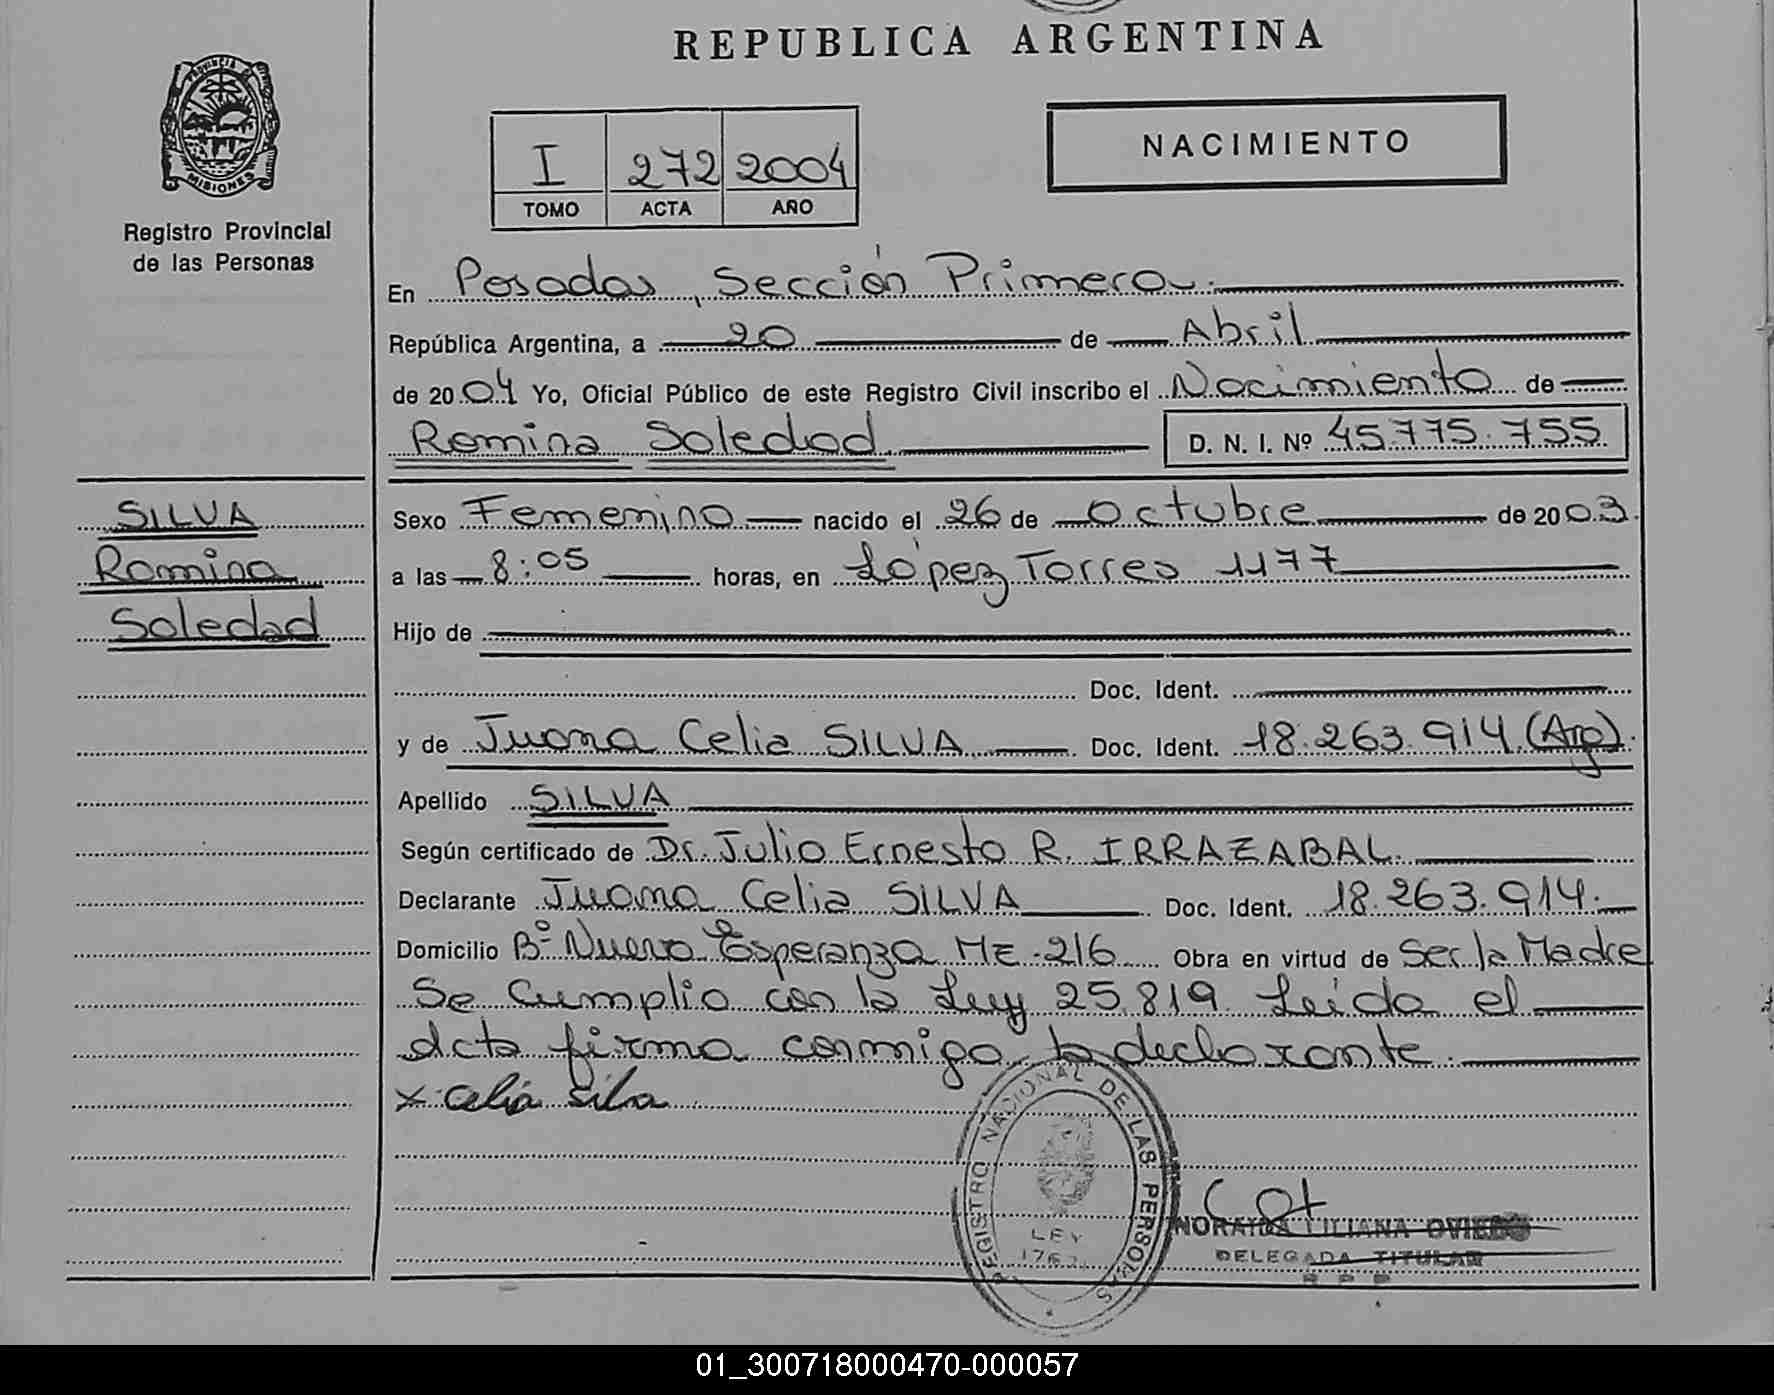 REPUBLICA ARGENTINA
PROVINCIA DE
MISIONES
Registro Provincial
de las Personas
I 272 2004
TOMO ACTA AÑO
NACIMIENTO
En Posadas, Sección Primera.
República Argentina, a 20 de Abril
de 2004 Yo, Oficial Público de este Registro Civil inscribo el Nacimiento de
Romina Soledad D. N. I. Nº 45.775.755
SILVA
Romina
Soledad
Sexo Femenino nacido el 26 de Octubre de 2003.
a las 8:05 horas, en López Torres 1177
Hijo de
Doc. Ident.
y de Juana Celia SILVA Doc. Ident. 18.263.914 (Arg).
Apellido SILVA
Según certificado de Dr. Julio Ernesto R. IRRAZABAL.
Declarante Juana Celia SILVA Doc. Ident. 18.263.914.
Domicilio Bº Nueva Esperanza MZ-216 Obra en virtud de Ser la Madre
Se Cumplio con la Ley 25.819. Leida el
acta firma conmigo la declarante.
x Celia Silva
REGISTRO NACIONAL DE LAS PERSONAS
LEY
NORAIDA LILIANA OVIEDO
DELEGADA TITULAR
R P P
01_300718000470-000057